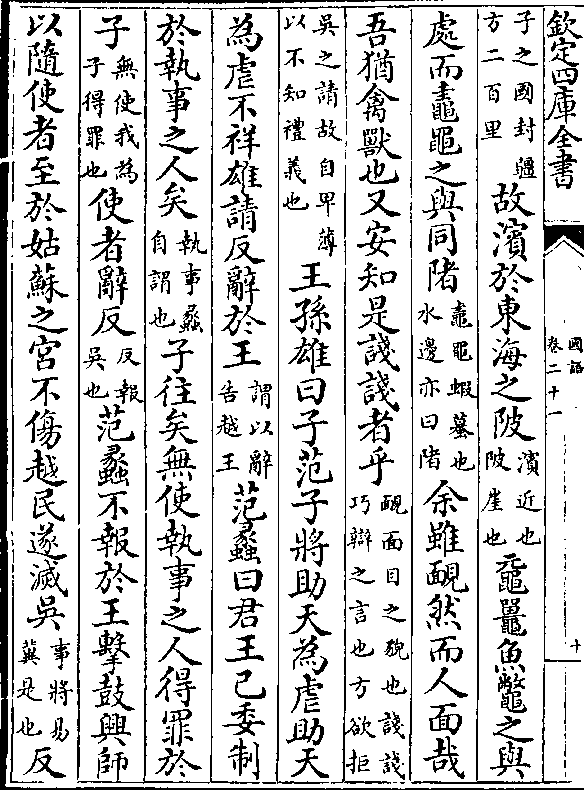 欽定四庫全書
國語
卷二十一
十
子之國封疆方二百里故濱於東海之陂濱近也陂崖也黿鼉魚鱉之與
處而鼃黽之與同陼鼃黽蝦蟇也水邊亦曰陼余雖靦然而人面哉
吾猶禽獸也又安知是諓諓者乎靦面目之貌也諓諓巧辯之言也方欲拒
吳之請故自卑薄以不知禮義也王孫雄曰子范子將助天為虐助天
為虐不祥雄請反辭於王謂以辭告越王范蠡曰君王已委制
於執事之人矣執事蠡自謂也子往矣無使執事之人得罪於
子無使我為子得罪也使者辭反反報吳也范蠡不報於王擊鼓興師
以隨使者至於姑蘇之宮不傷越民遂滅吳事將易冀是也反